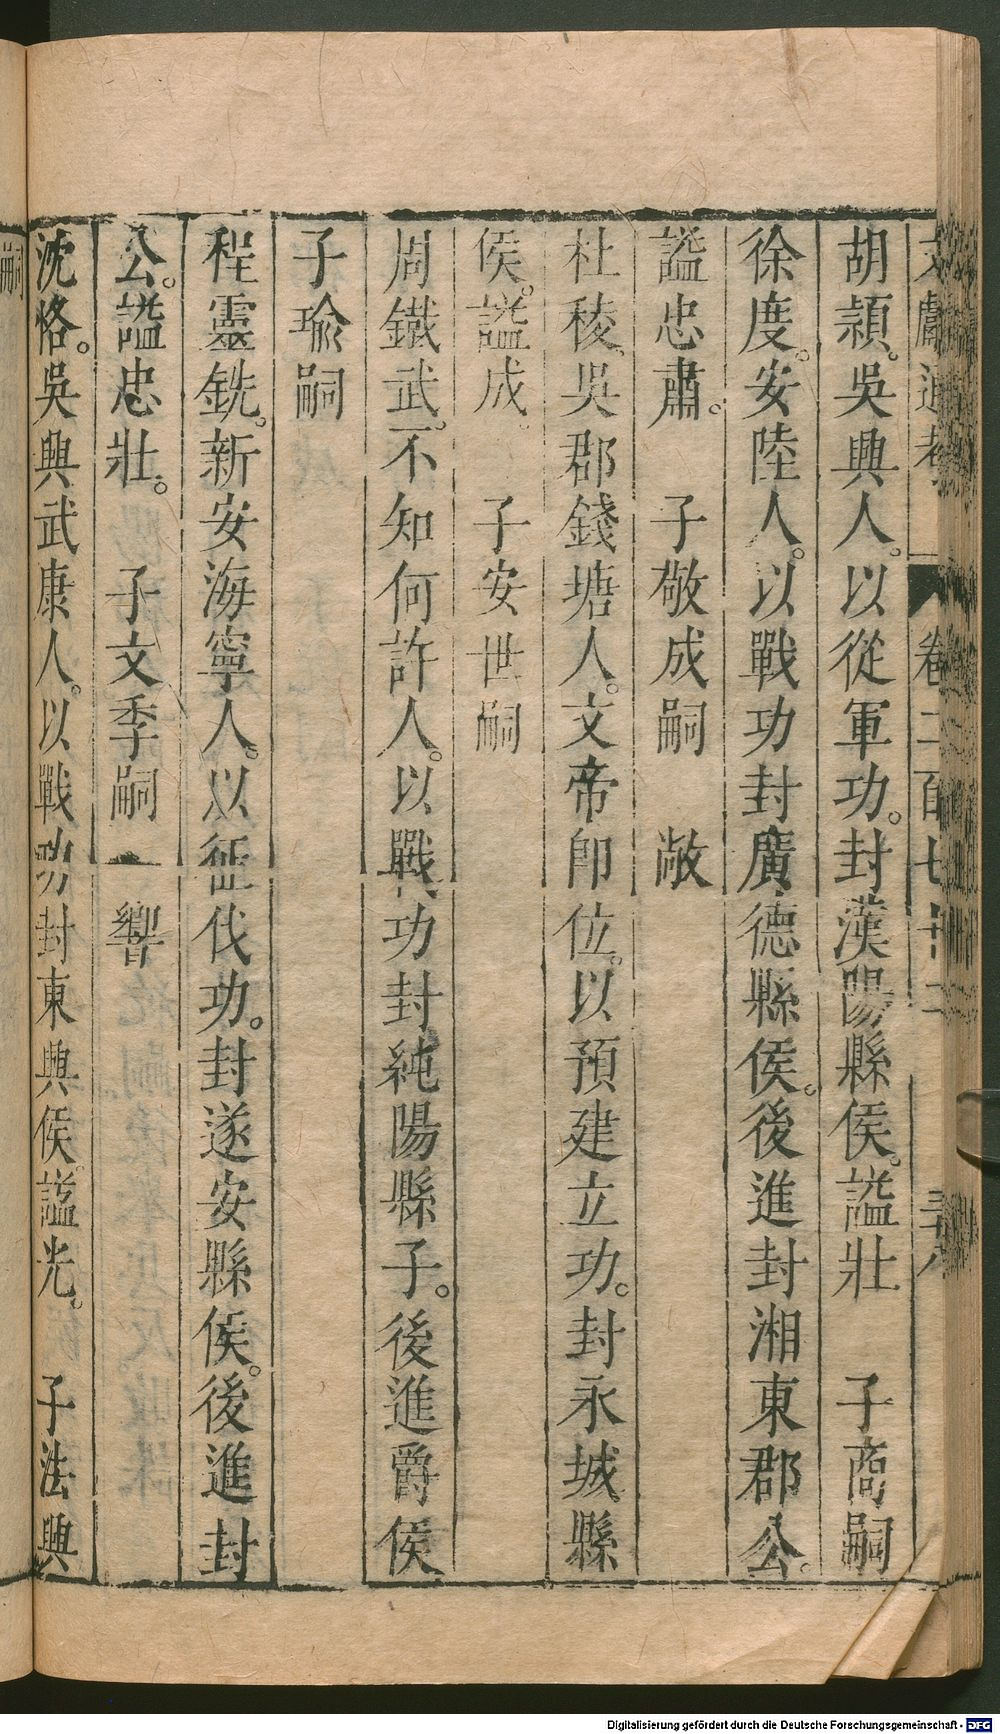 文獻通考 卷二百七十二 三十八
胡頴。吳興人。以從軍功。封漢陽縣侯。謚壯 子商嗣
徐度。安陸人。以戰功封廣德縣侯。後進封湘東郡公。
謚忠肅。 子敬成嗣 敞
杜稜。吳郡錢塘人。文帝卽位。以預建立功。封永城縣
侯。謚成。 子安世嗣
周鐵武。不知何許人。以戰功封純陽縣子。後進爵侯
子瑜嗣
程靈銑。新安海寧人。以征伐功。封遂安縣侯。後進封
公。謚忠壯。 子文季嗣 響
沈恪。吳興武康人。以戰功封東興侯。謚光。 子法興
嗣
Digitalisierung gefördert durch die Deutsche Forschungsgemeinschaft - DFG